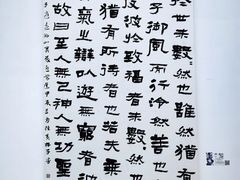 於世未數〻然也雖然猶有
子御風而行泠然善也
彼於致福者未數〻然也
猶有所待者也若夫乘
氣之辯以遊無窮者彼
故曰至人無己神人無功聖